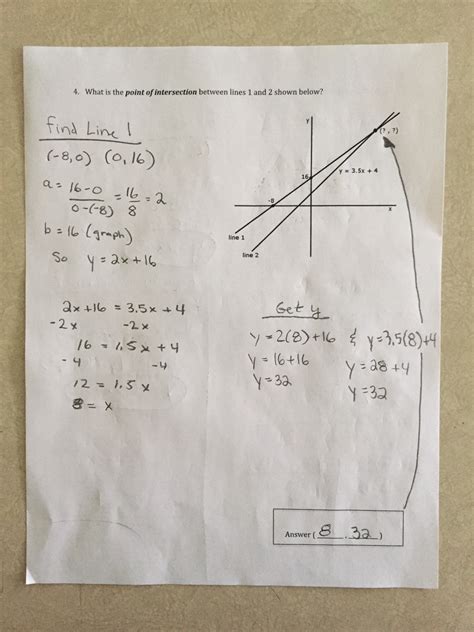 4. What is the point of intersection between lines 1 and 2 shown below?
find Line 1
(-8,0) (0,16)
a = 16-0 / 0-(-8) = 16 / 8 = 2
b = 16 (graph)
So y = 2x + 16
y
(?, ?)
16
y = 3.5x + 4
-8
x
line 1
line 2
2x +16 = 3.5x + 4
-2x -2x
16 = 1.5x + 4
-4 -4
12 = 1.5x
8 = x
Get y
y = 2(8)+16 & y=3.5(8)+4
y = 16+16 y = 28+4
y = 32 y = 32
Answer ( 8 , 32 )